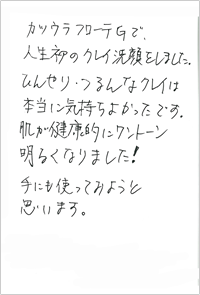 カツウラフローテGで、
人生初のクレイ洗顔をしました。
ひんやり・つるんなクレイは
本当に気持ちよかったです。
肌が健康的にワントーン
明るくなりました!
手にも使ってみようと
思います。